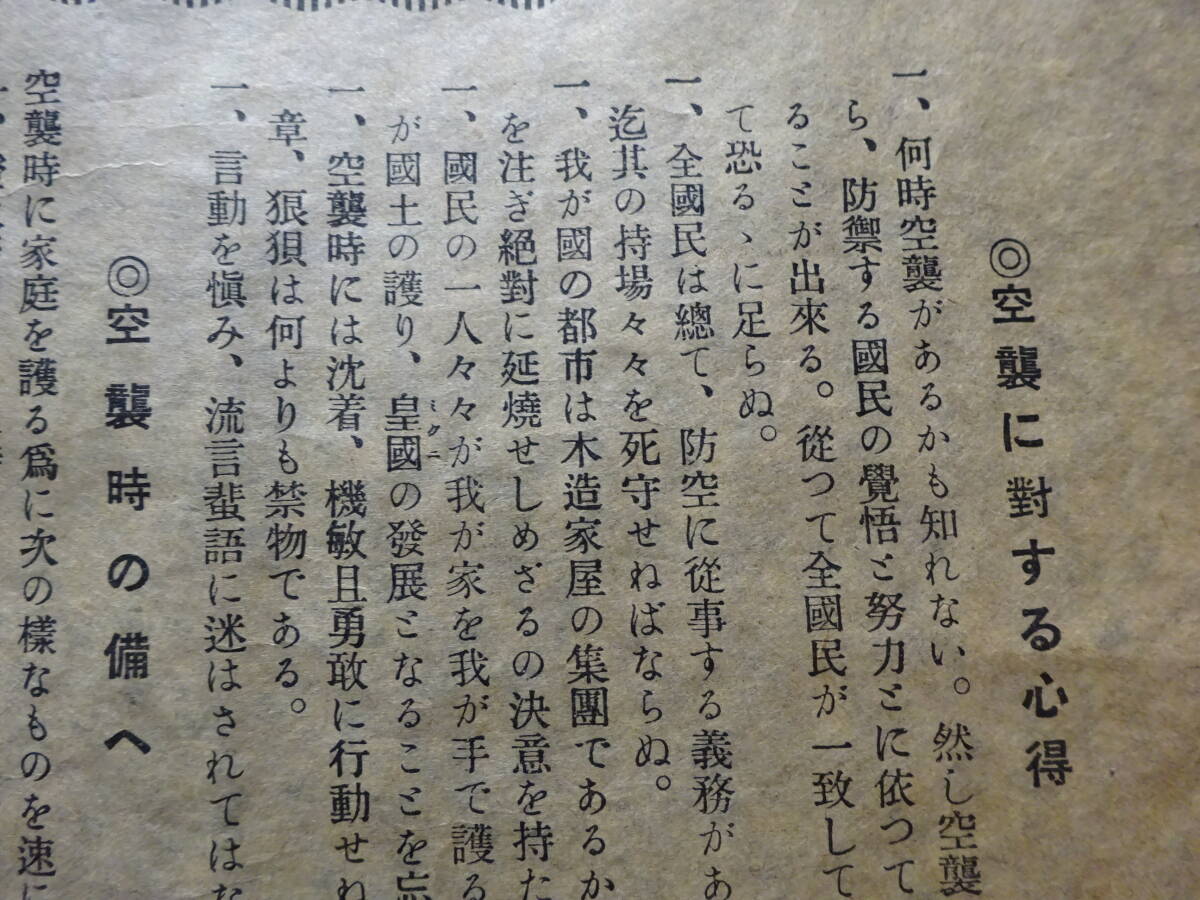 ◎空襲に對する心得
一、何時空襲があるかも知れない。然し空襲
ら、防禦する國民の覺悟と努力とに依つて
ることが出來る。從つて全國民が一致して
て恐るヽに足らぬ。
一、全國民は總て、防空に從事する義務があ
迄其の持場々々を死守せねばならぬ。
一、我が國の都市は木造家屋の集團であるか
を注ぎ絕對に延燒せしめざるの決意を持た
一、國民の一人々々が我が家を我が手で護る
が國土の護り、皇國の發展となることを忘
ミクニ
一、空襲時には沈着、機敏且勇敢に行動せね
章、狼狽は何よりも禁物である。
一、言動を愼み、流言蜚語に迷はされてはな
◎空襲時の備へ
空襲時に家庭を護る爲に次の樣なものを速に